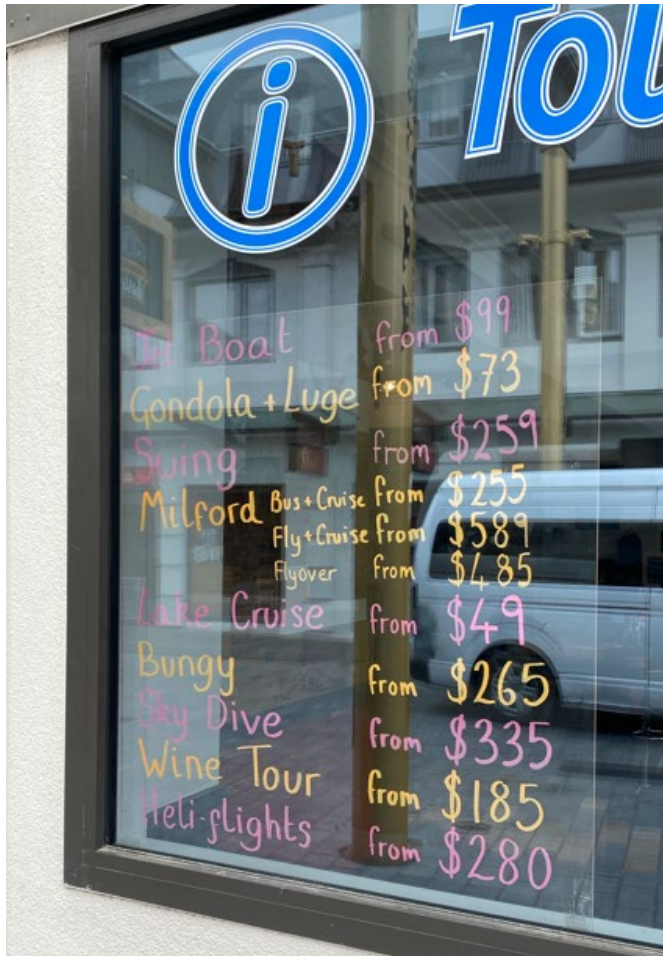 i Tou
Jet Boat from $99
Gondola + Luge from $73
Swing from $259
Milford Bus + Cruise from $255
Fly + Cruise from $589
Flyover from $485
Lake Cruise from $49
Bungy from $265
Sky Dive from $335
Wine Tour from $185
Heli-flights from $280